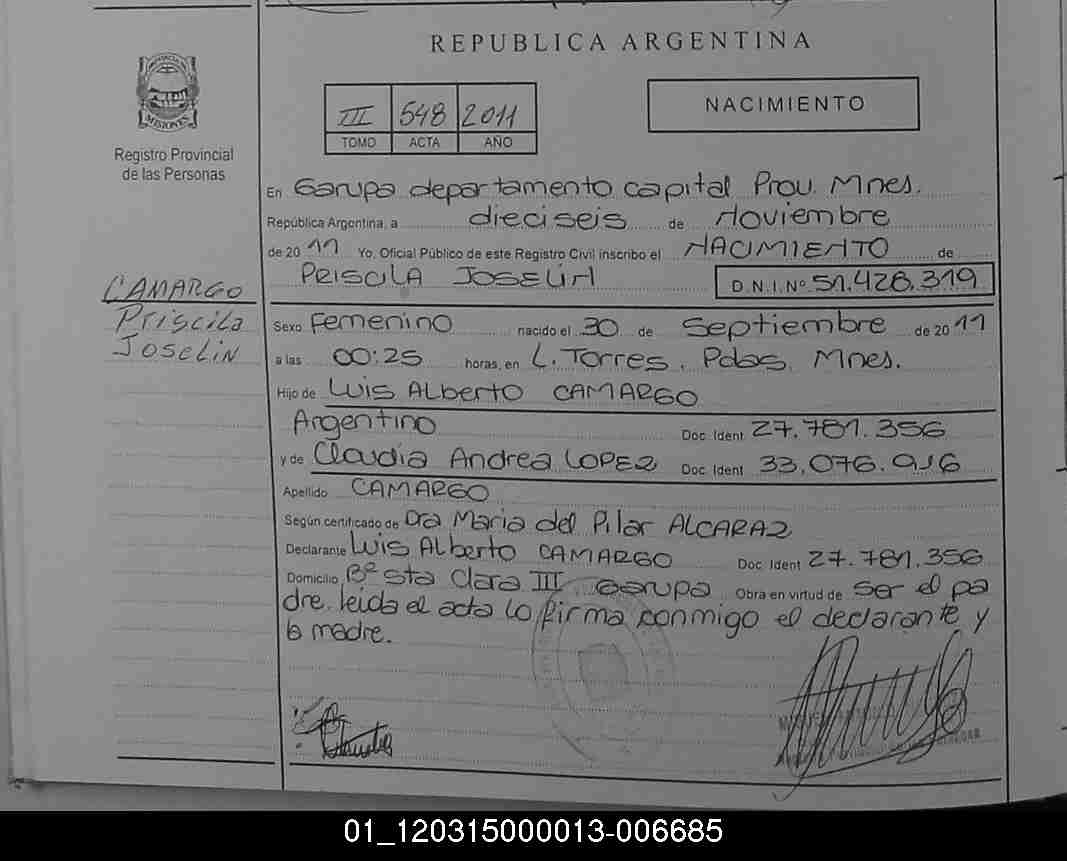 REPUBLICA ARGENTINA
PROVINCIA DE
MISIONES
Registro Provincial
de las Personas
III 548 2011
TOMO ACTA AÑO
NACIMIENTO
En Garupa departamento capital Prov. Mnes.
República Argentina, a dieciseis de Noviembre
de 2011 Yo, Oficial Público de este Registro Civil inscribo el NACIMIENTO de
PRISCILA JOSELIN D.N.I.Nº 51.428.319
CAMARGO
Priscila
Joselin
Sexo Femenino nacido el 30 de Septiembre de 2011
a las 00:25 horas, en L. Torres. Pdas. Mnes.
Hijo de Luis Alberto CAMARGO
Argentino Doc. Ident 27.781.356
y de Claudia Andrea LOPEZ Doc. Ident 33.076.916
Apellido CAMARGO
Según certificado de Dra Maria del Pilar ALCARAZ
Declarante Luis Alberto CAMARGO Doc. Ident 27.781.356
Domicilio Bº Sta Clara III Garupa Obra en virtud de ser el pa
dre. leida el acta lo firma conmigo el declarante y
la madre.
01_120315000013-006685